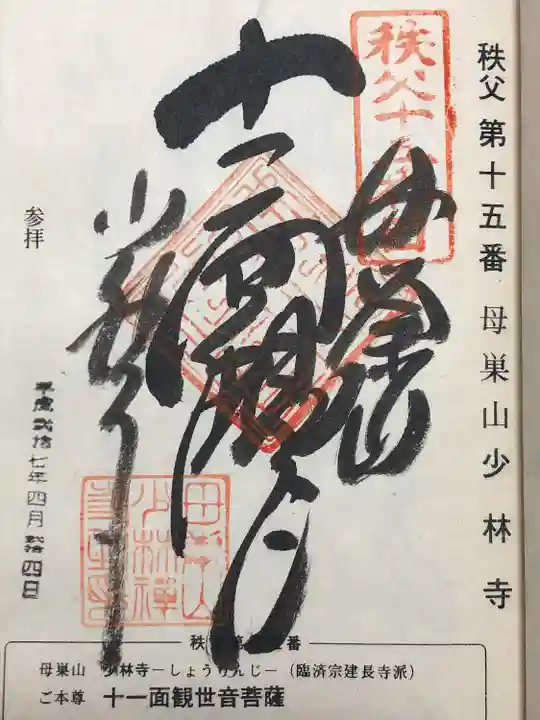 秩父第十五番 母巣山少林寺
秩父十五番
母巣山
十一面観音
少林寺
参拝
平成弐拾七年四月弐拾四日
母巣山少林禅寺
秩父第十五番
母巣山 少林寺－しょうりんじ－（臨済宗建長寺派）
ご本尊 十一面観世音菩薩